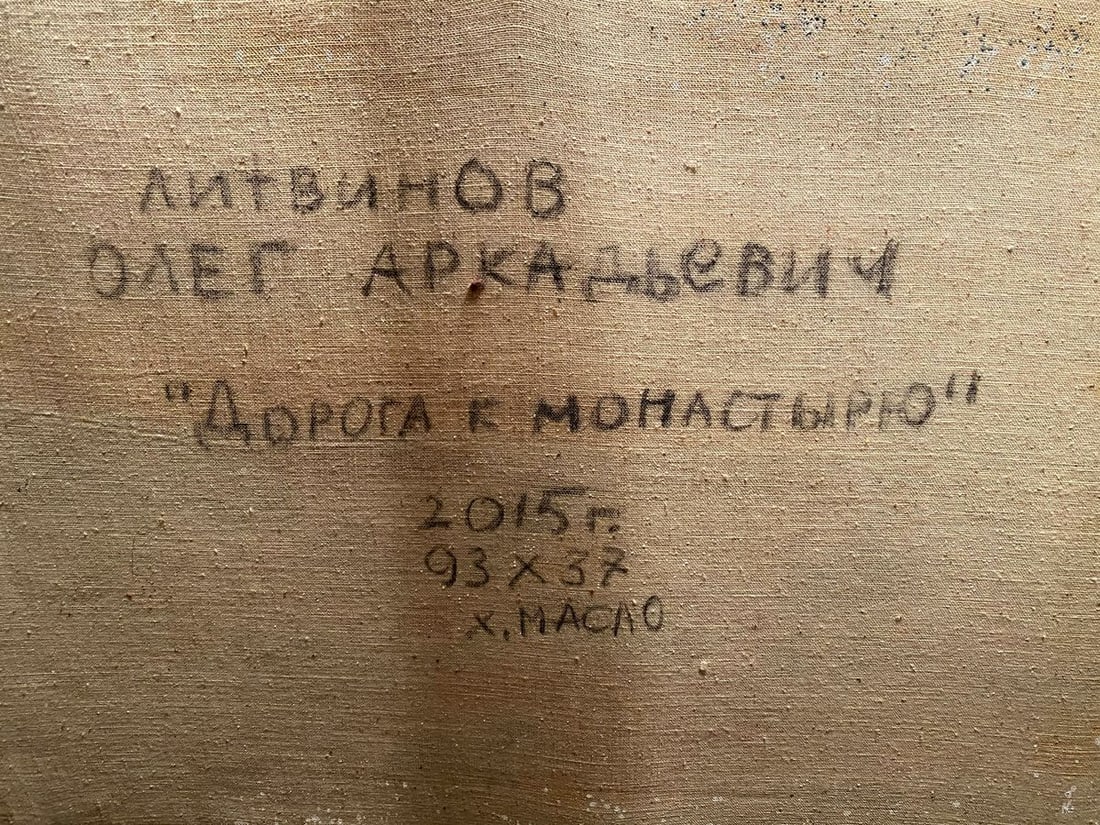 ЛИТВИНОВ
ОЛЕГ АРКАДЬЕВИЧ
"ДОРОГА К МОНАСТЫРЮ"
2015г.
93 X 37
х. МАСЛО